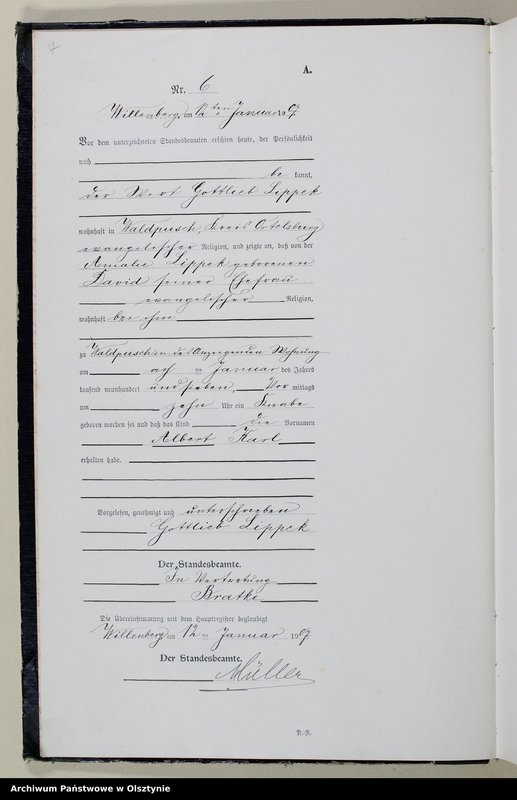 A.
Nr. 6
Willenberg, am 12ten Januar 1907.
Vor dem unterzeichneten Standesbeamten erschien heute, der Persönlichkeit
nach
be kannt,
der Wirt Gottlieb Lippek
wohnhaft in Waldpusch, Kreis Ortelsburg
evangelischer Religion, und zeigte an, daß von der
Amalie Lippek geborenen
David seiner Ehefrau
evangelischer Religion,
wohnhaft bei ihm
zu Waldpusch in des Anzeigenden Wohnung
am acht ten Januar des Jahres
tausend neunhundert und sieben, Vor mittags
um zehn Uhr ein Knabe
geboren worden sei und daß das Kind die Vornamen
Albert Karl
erhalten habe.
Vorgelesen, genehmigt und unterschrieben
Gottlieb Lippek
Der Standesbeamte.
In Vertretung
Bratke
Die Übereinstimmung mit dem Hauptregister beglaubigt
Willenberg, am 12 ten Januar 1907.
Der Standesbeamte.
Müller
Archiwum Państwowe w Olsztynie